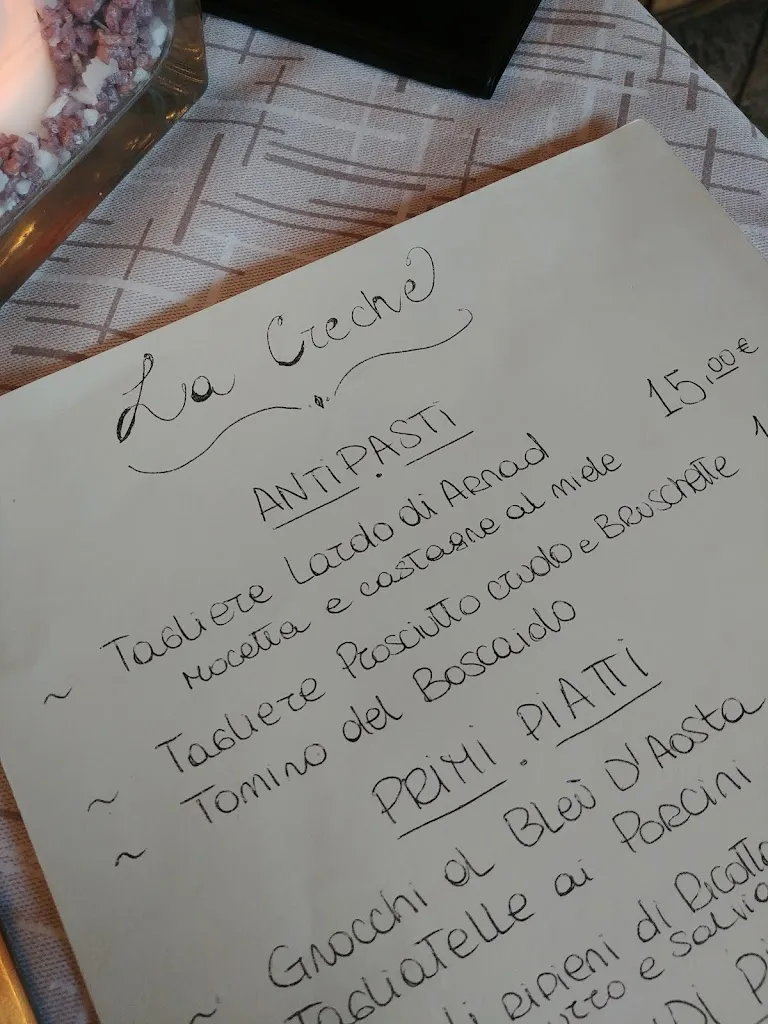 La Creche
ANTIPASTI
~ Tagliere Lardo di Arnad 15,00€
Mocetta e castagne al miele
~ Tagliere Prosciutto crudo e Bruschette
~ Tomino del Boscaiolo
PRIMI PIATTI
~ Gnocchi al Bleu D'Aosta
Tagliatelle ai Porcini
ripieni di Ricotta
e salvia